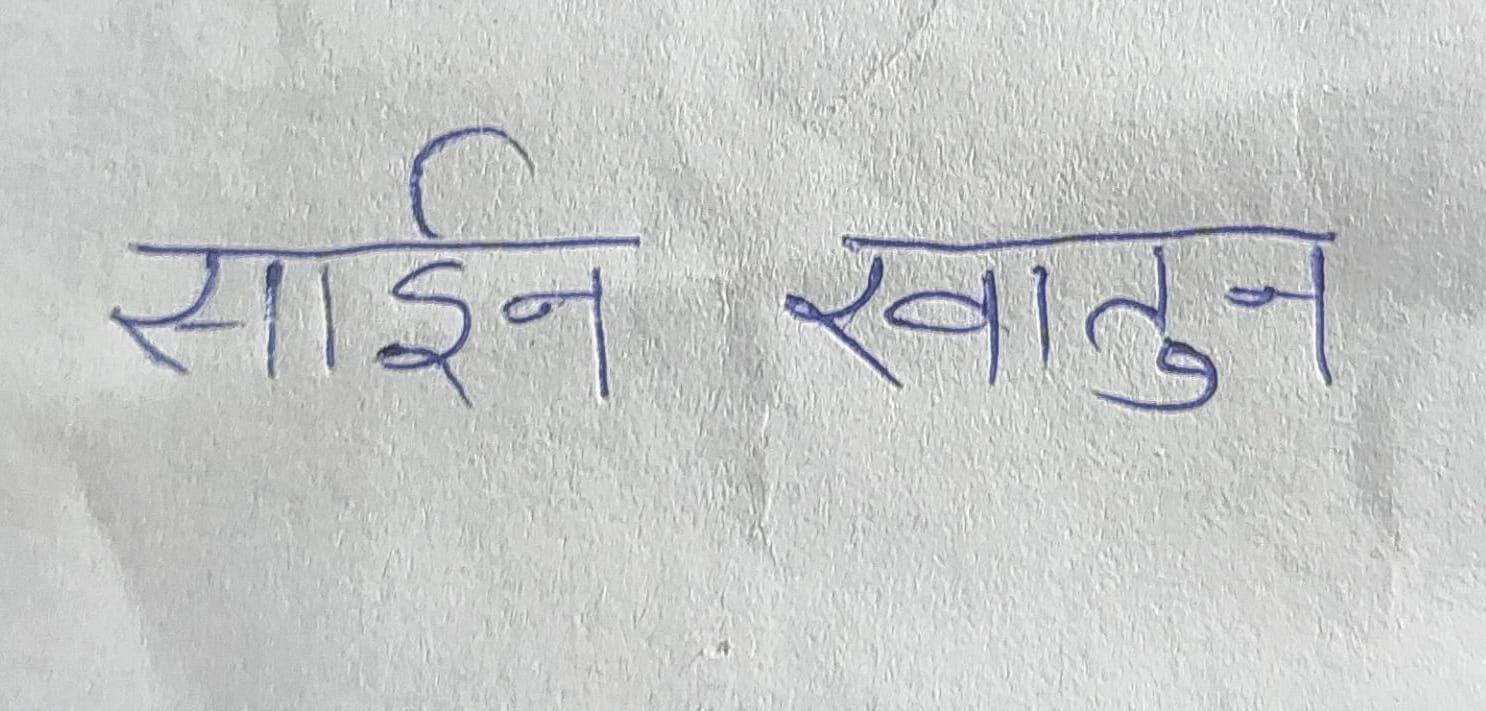 साईन खातुन